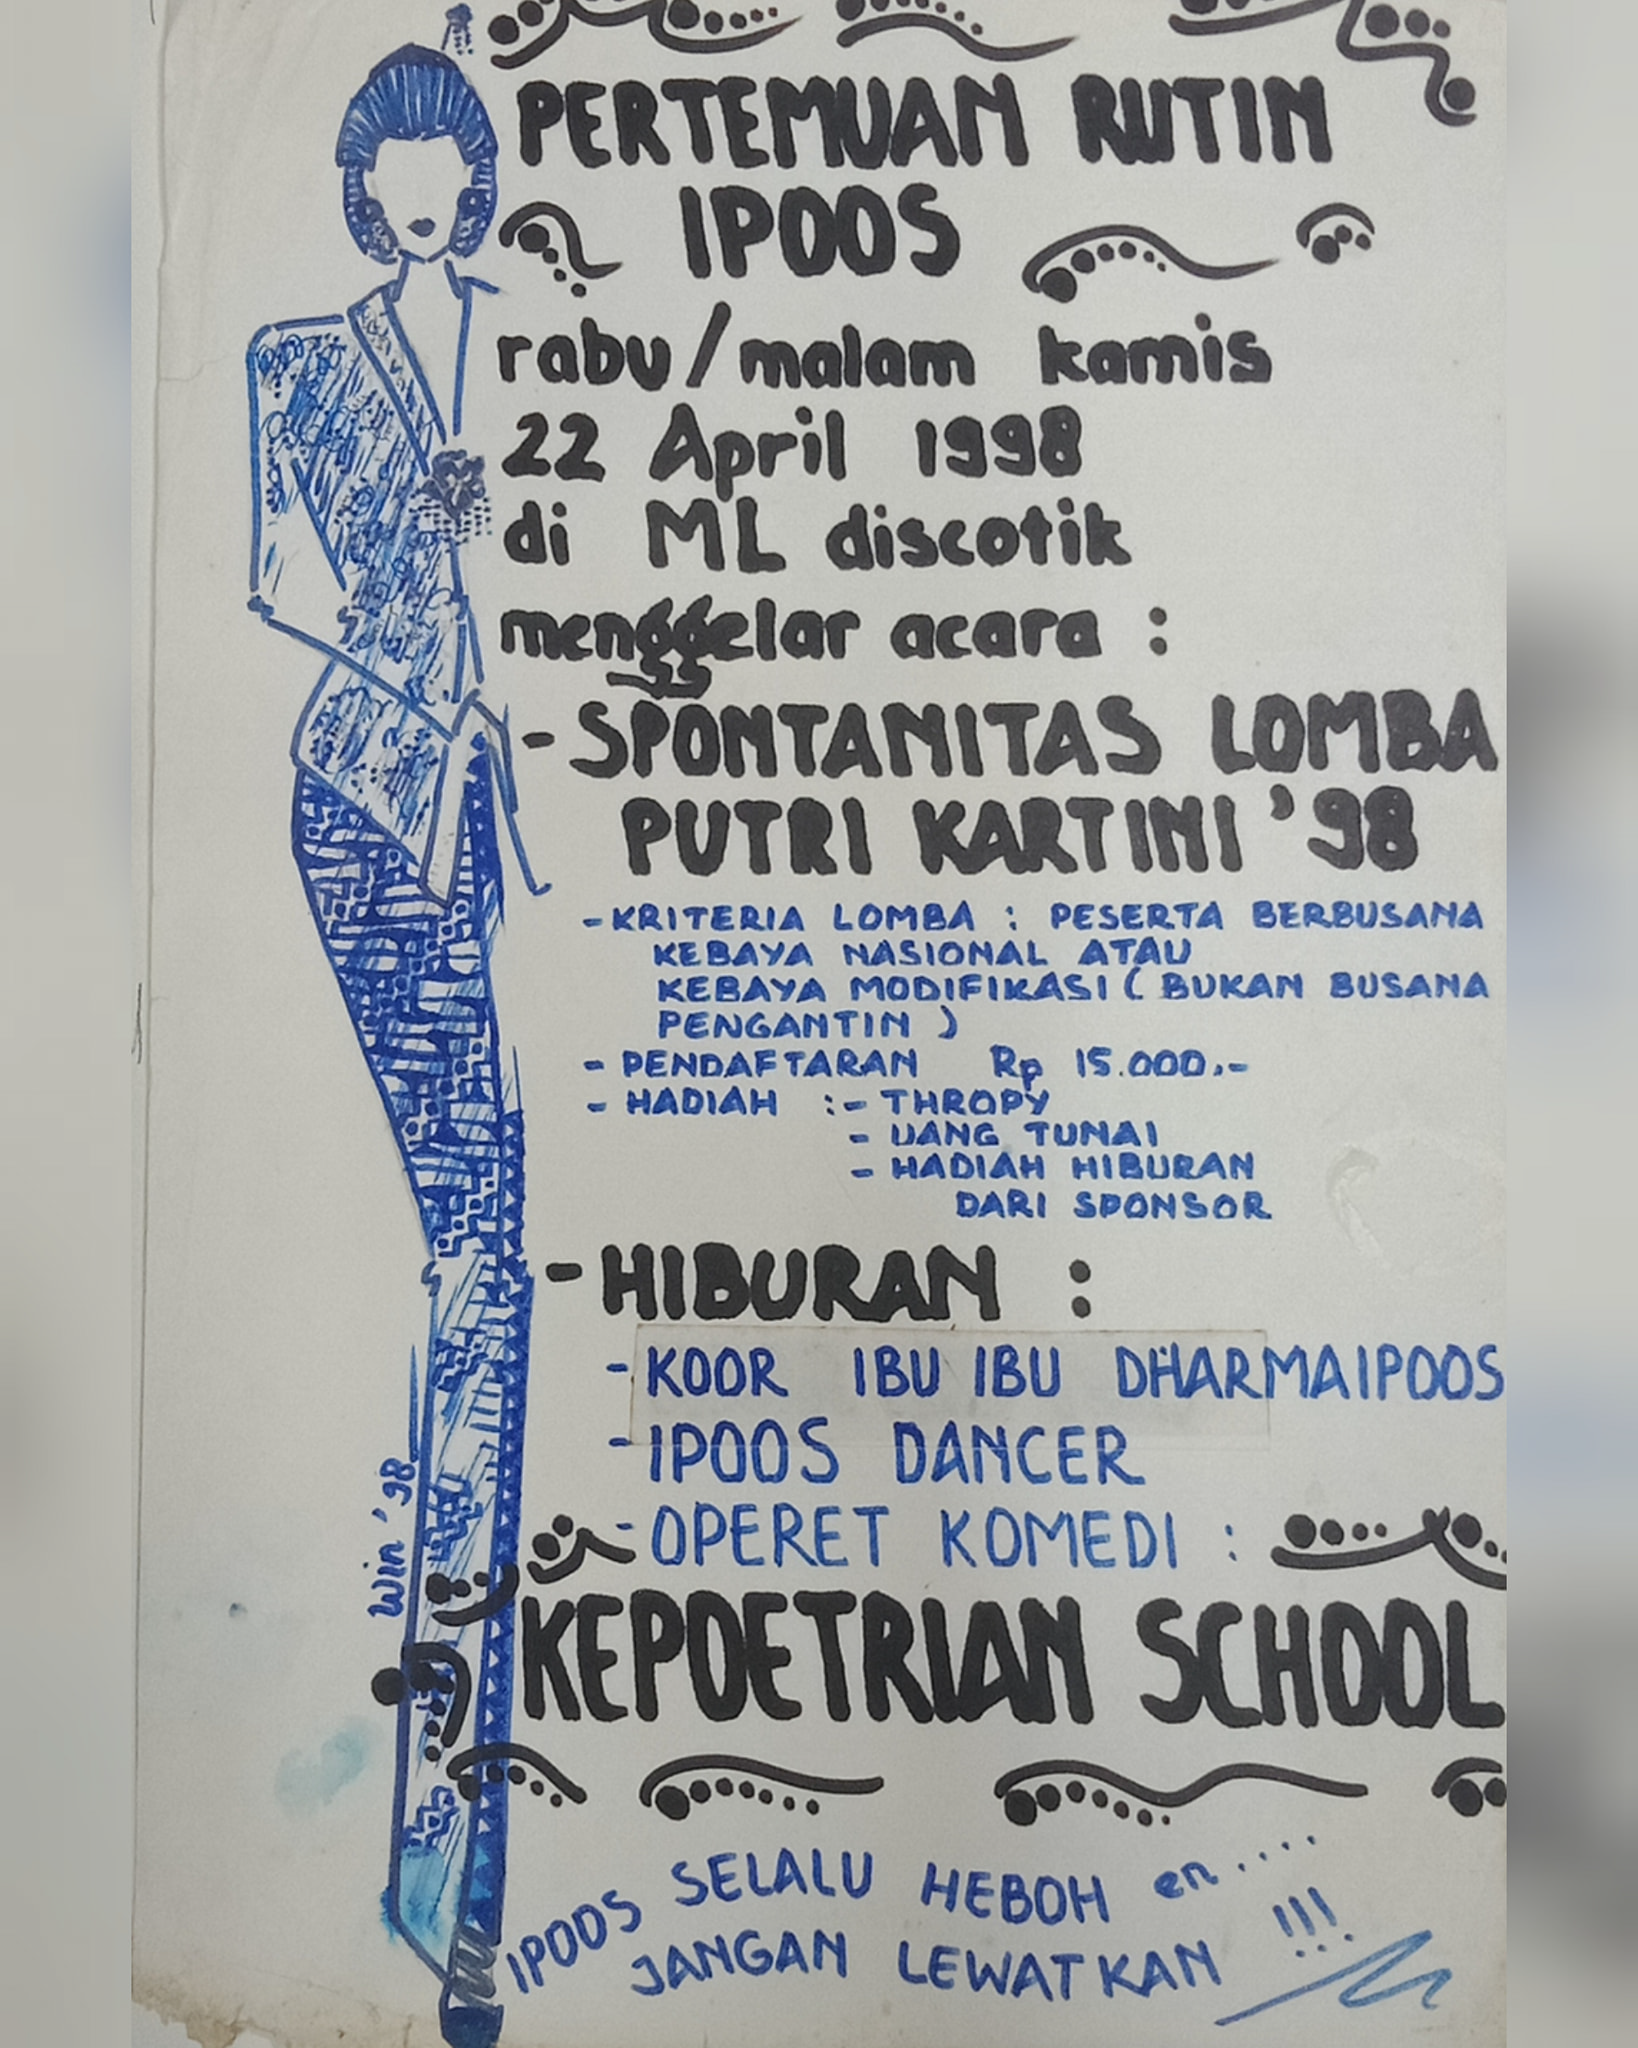 PERTEMUAN RUTIN
IPOOS
rabu/malam kamis
22 April 1998
di ML discotik
menggelar acara :
- SPONTANITAS LOMBA
PUTRI KARTINI '98
- KRITERIA LOMBA : PESERTA BERBUSANA
KEBAYA NASIONAL ATAU
KEBAYA MODIFIKASI ( BUKAN BUSANA
PENGANTIN )
- PENDAFTARAN Rp 15.000.-
- HADIAH : - THROPY
- UANG TUNAI
- HADIAH HIBURAN
DARI SPONSOR
- HIBURAN :
- KOOR IBU IBU DHARMAIPOOS
- IPOOS DANCER
- OPERET KOMEDI :
KEPOETRIAN SCHOOL
IPOOS SELALU HEBOH en ....
JANGAN LEWATKAN !!!
Win '98